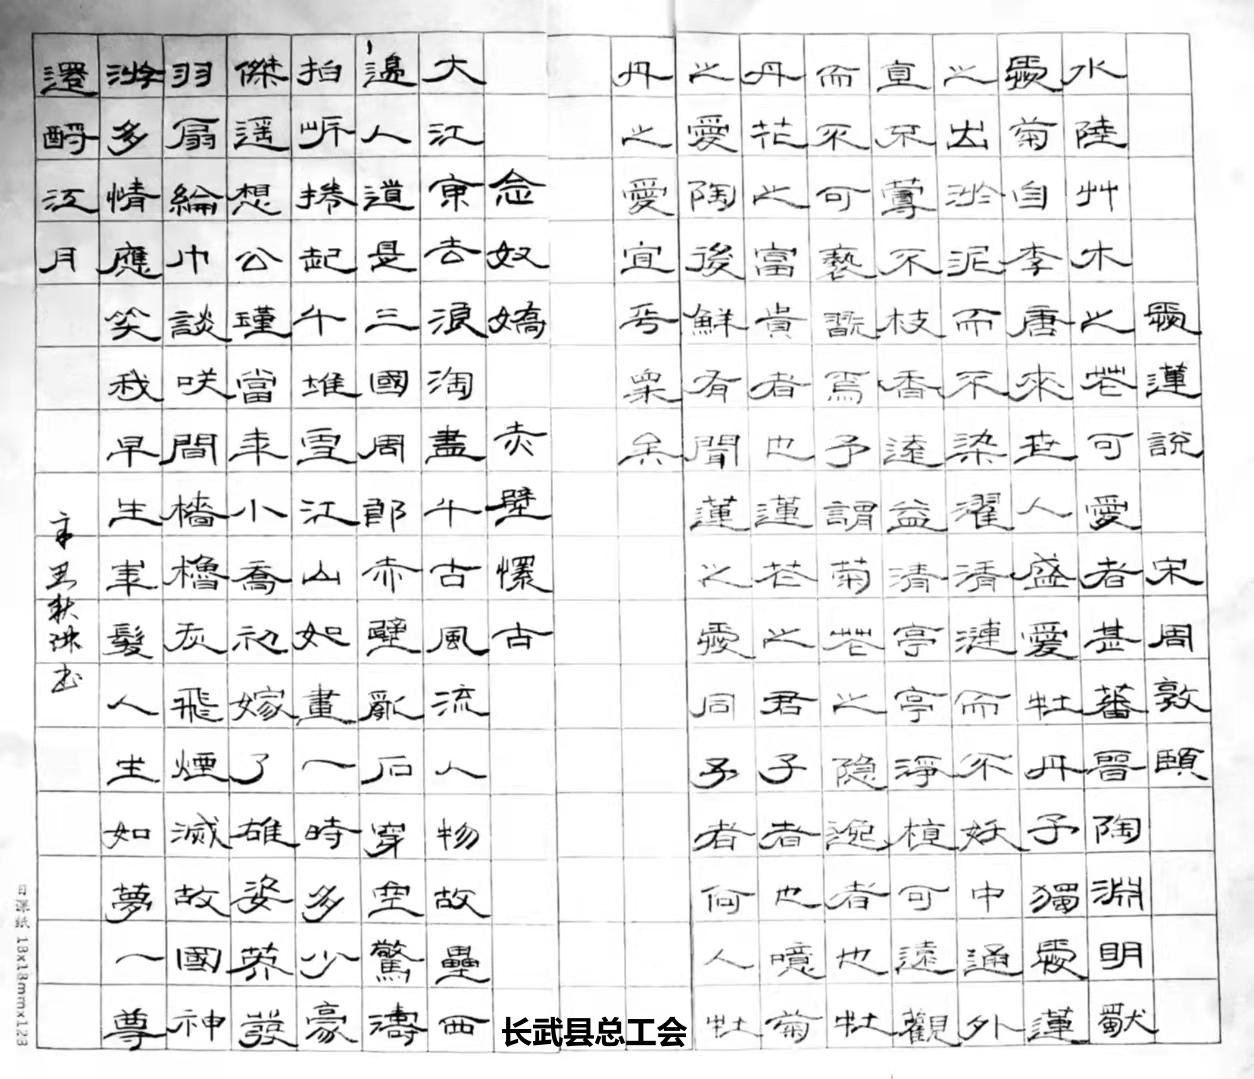 愛蓮説 宋周敦頤
水陸艸木之花可愛者甚蕃晉陶淵明獨
愛菊自李唐來世人盛愛牡丹予獨愛蓮
之出淤泥而不染濯清漣而不妖中通外
直不蔓不枝香遠益清亭亭淨植可遠觀
而不可褻翫焉予謂菊花之隐逸者也牡
丹花之富貴者也蓮花之君子者也噫菊
之愛陶後鮮有聞蓮之愛同予者何人牡
丹之愛宜乎眾矣
念奴嬌 赤壁懷古
大江東去浪淘盡千古風流人物故壘西
邊人道是三國周郎赤壁亂石穿空驚濤
拍岍捲起千堆雪江山如畫一時多少豪
傑遥想公瑾當年小喬初嫁了雄姿英發
羽扇綸巾談咲間檣櫓灰飛煙滅故國神
游多情應笑我早生華髮人生如夢一尊
還酹江月
日課紙 18x18mmx123
长武县总工会